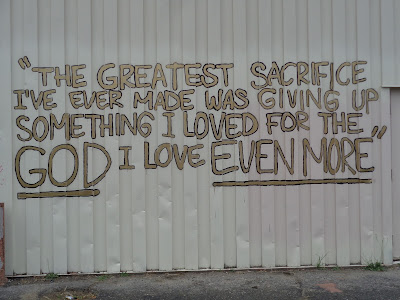 "THE GREATEST SACRIFICE
I'VE EVER MADE WAS GIVING UP
SOMETHING I LOVED FOR THE
GOD I LOVE EVEN MORE"